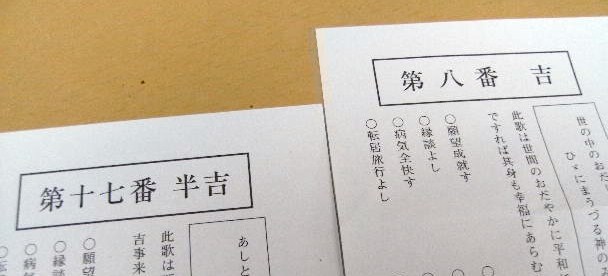 第八番 吉
世の中のおだ
ひゞにまうづる神の
此歌は世間のおだやかに平和
ですれば其身も幸福にあらむ
○願望成就す
○縁談よし
○病気全快す
○転居旅行よし
第十七番 半吉
あしと
此歌は
吉事来
○願望
○縁談
○病気
○転